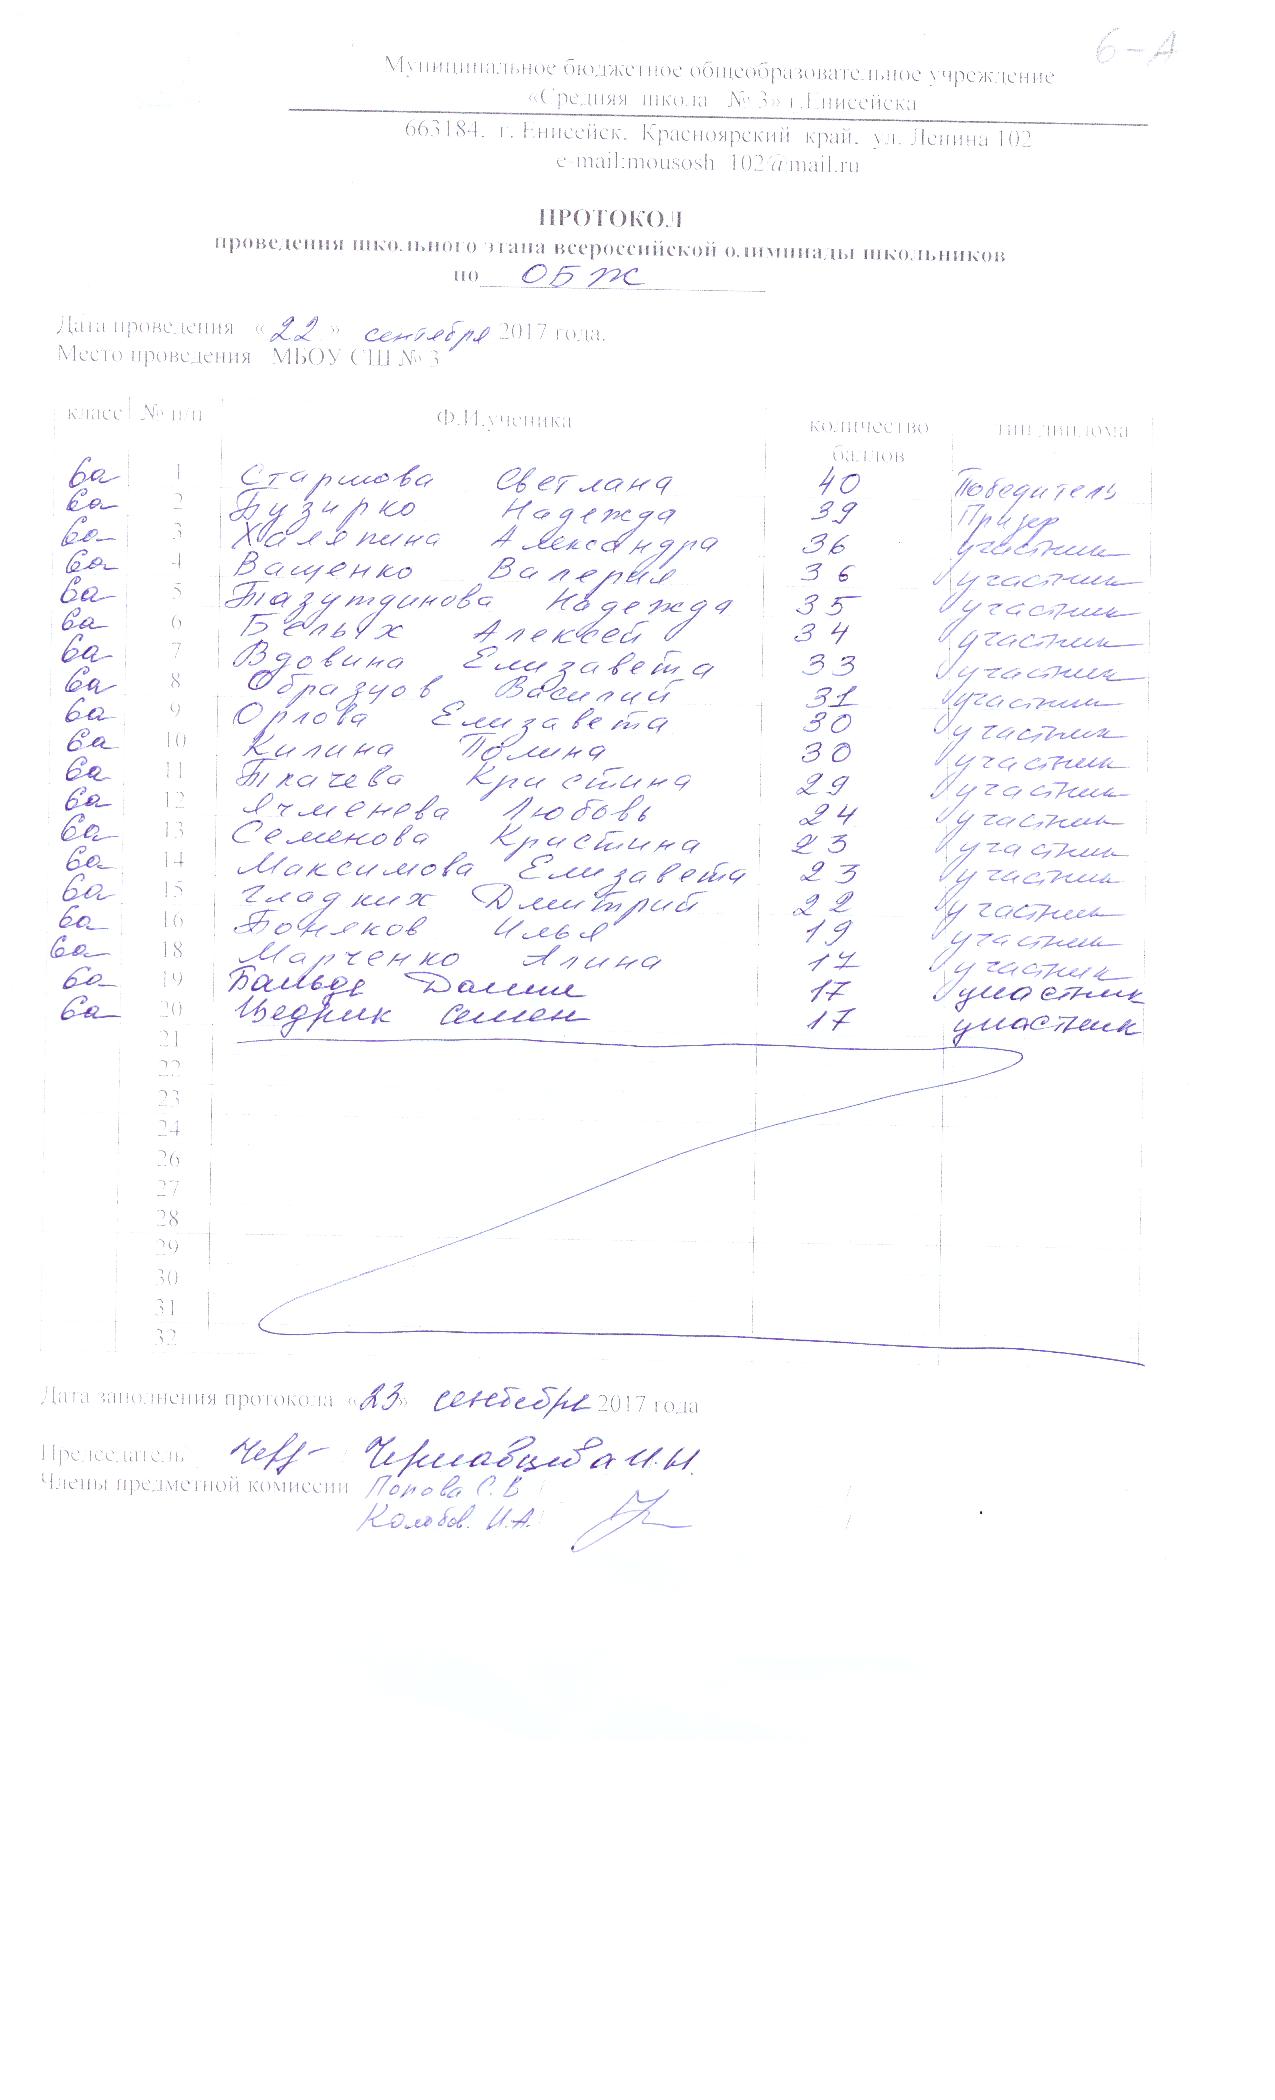 6-А
Муниципальное бюджетное общеобразовательное учреждение
«Средняя школа № 3» г.Енисейска
663184, г. Енисейск, Красноярский край, ул. Ленина 102
e-mail:mousosh_102@mail.ru
ПРОТОКОЛ
проведения школьного этапа всероссийской олимпиады школьников
по ОБЖ
Дата проведения «22» сентября 2017 года.
Место проведения МБОУ СШ № 3
класс № п/п Ф.И.ученика количество баллов тип диплома
6а 1 Старшова Светлана 40 Победитель
6а 2 Бузирко Надежда 39 Призер
6а 3 Халяпина Александра 36 участник
6а 4 Ващенко Валерия 36 участник
6а 5 Тазутдинова Надежда 35 участник
6а 6 Белых Алексей 34 участник
6а 7 Вдовина Елизавета 33 участник
6а 8 Образцов Василий 31 участник
6а 9 Орлова Елизавета 30 участник
6а 10 Килина Полина 30 участник
6а 11 Ткачева Кристина 29 участник
6а 12 Ячменева Любовь 24 участник
6а 13 Семенова Кристина 23 участник
6а 14 Максимова Елизавета 23 участник
6а 15 Гладких Дмитрий 22 участник
6а 16 Боняков Илья 19 участник
6а 18 Марченко Алина 17 участник
6а 19 Бальде 17 участник
6а 20 Цедрик Семен 17 участник
21
22
23
24
26
27
28
29
30
31
32
Дата заполнения протокола «23» сентября 2017 года
Председатель И.Н.
Члены предметной комиссии Попова С.В
Колобов. И.А.